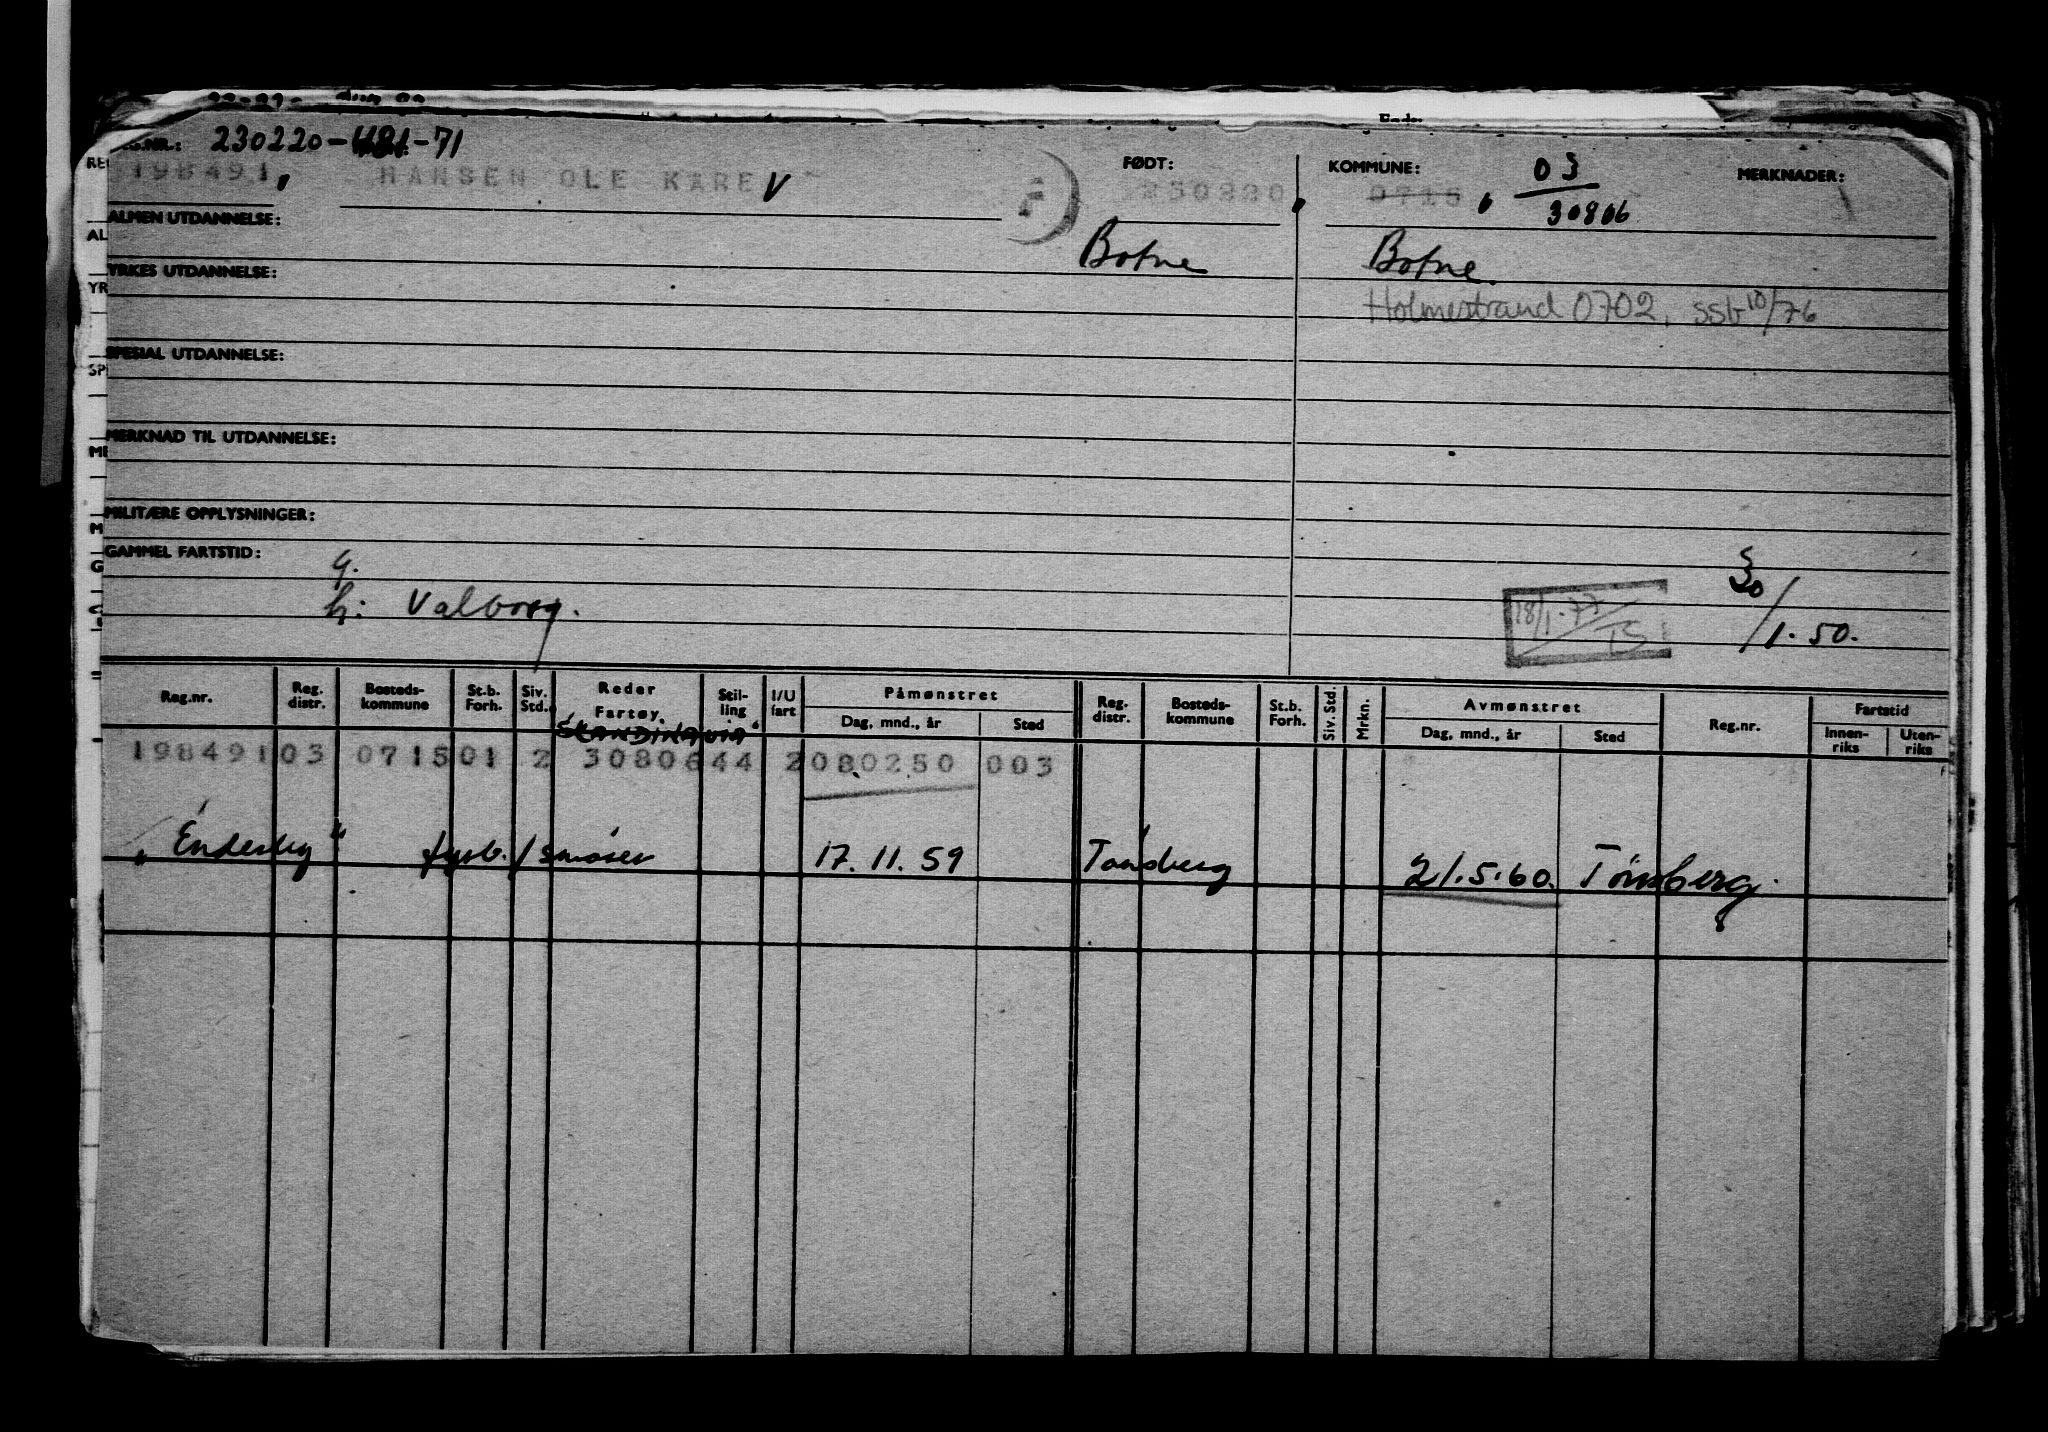 230220-481-71
198491, HANSEN OLE KÅRE V
FØDT: 230220,
KOMMUNE: 0715, 03
30806
MERKNADER:
ALMEN UTDANNELSE:
Botne
Botne
YRKES UTDANNELSE:
Holmestrand 0702, ssb 10/76
SPESIAL UTDANNELSE:
MERKNAD TIL UTDANNELSE:
MILITÆRE OPPLYSNINGER:
GAMMEL FARTSTID:
g.
h: Valborg.
18/1-77
30/1.50.
Reg.nr. Reg. distr. Bosteds-kommune St.b. Forh. Siv. Std. Reder Fartøy. Stil-ling I/U fart Påmønstret Dag, mnd., år Sted Reg. distr. Bosteds-kommune St.b. Forh. Siv. Std. Mrkn. Avmønstret Dag, mnd., år Sted Reg.nr. Fartstid Innen-riks Uten-riks
SKANDINAVIA
198491 03 0715 01 2 30806 44 2 080250 003
"Enderby" fyrb./smører 17.11.59 Tønsberg 21.5.60. Tønsberg.